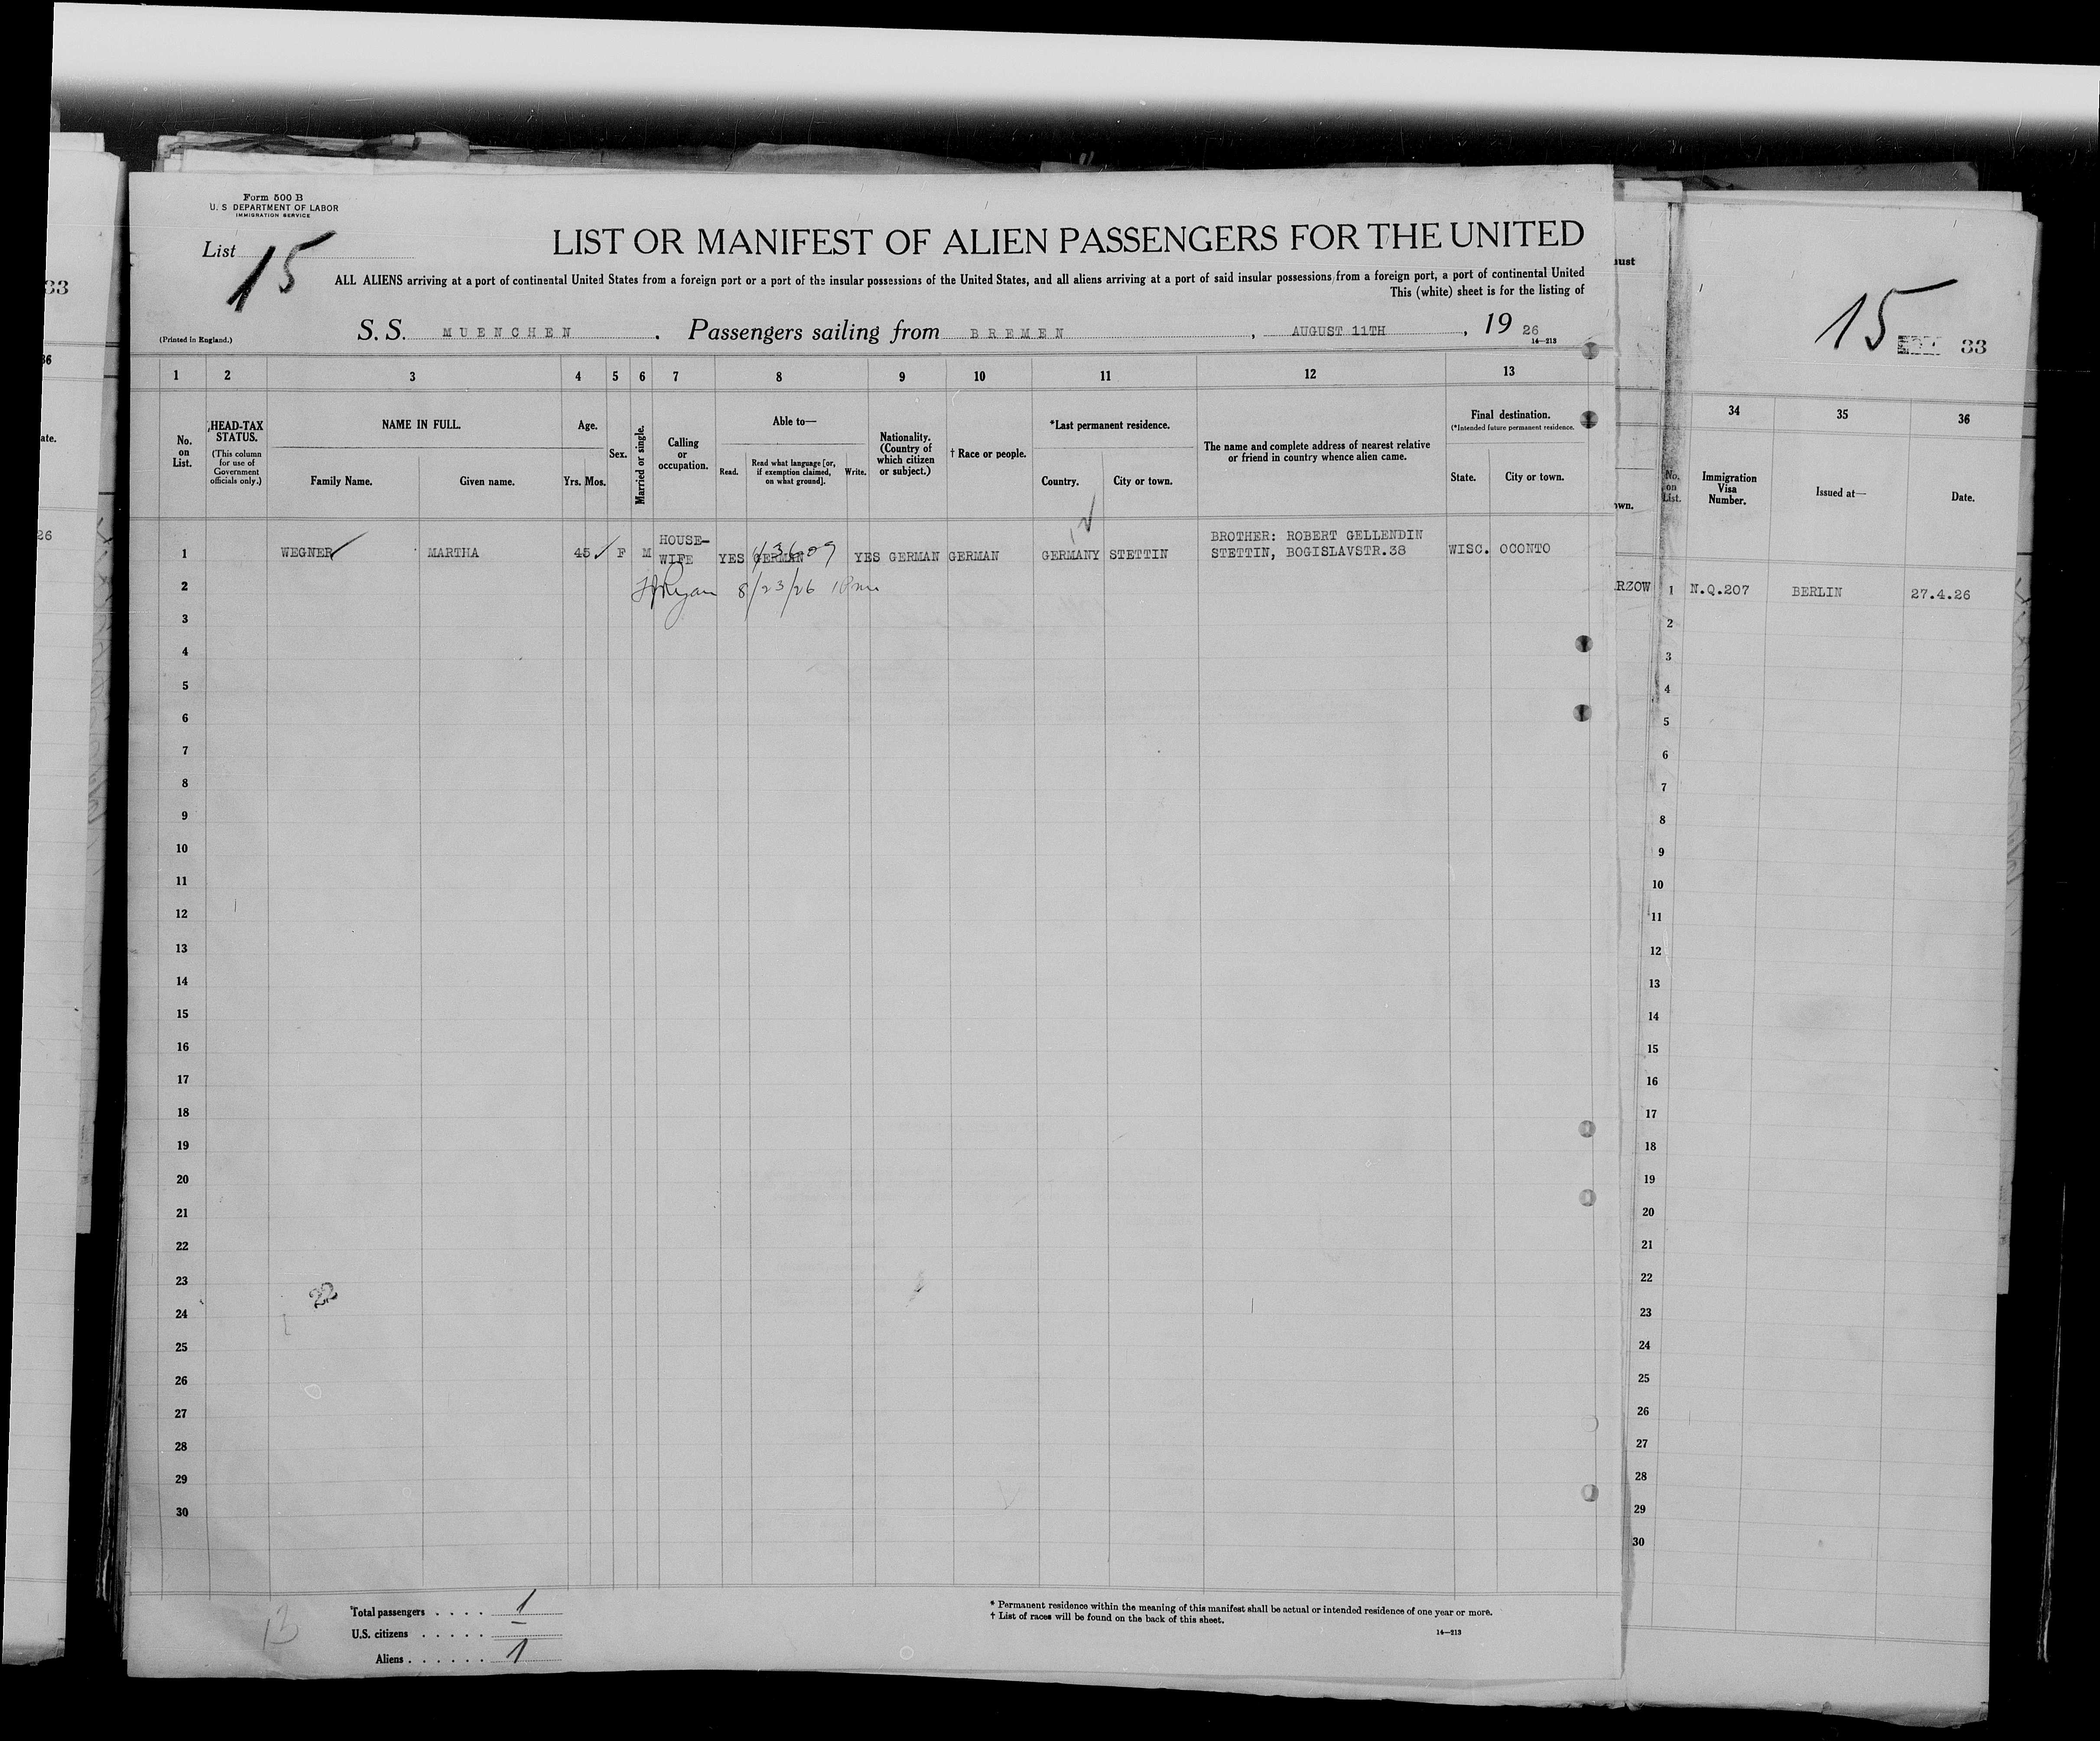 33
36
ate.
26
Form 500 B
U. S DEPARTMENT OF LABOR
IMMIGRATION SERVICE
List 15
LIST OR MANIFEST OF ALIEN PASSENGERS FOR THE UNITED
ALL ALIENS arriving at a port of continental United States from a foreign port or a port of the insular possessions of the United States, and all aliens arriving at a port of said insular possessions from a foreign port, a port of continental United
This (white) sheet is for the listing of
(Printed in England.)
S. S. MUENCHEN . Passengers sailing from BREMEN , AUGUST 11TH , 19 26
14—213
1 2 3 4 5 6 7 8 9 10 11 12 13
No. on List.
HEAD-TAX STATUS.
(This column for use of Government officials only.)
NAME IN FULL.
Family Name. Given name.
Age.
Yrs. Mos.
Sex.
Married or single.
Calling or occupation.
Able to—
Read. Read what language [or, if exemption claimed, on what ground]. Write.
Nationality. (Country of which citizen or subject.)
† Race or people.
*Last permanent residence.
Country. City or town.
The name and complete address of nearest relative or friend in country whence alien came.
Final destination.
(*Intended future permanent residence.
State. City or town.
1 WEGNER MARTHA 45 F M HOUSE-WIFE YES GERMAN YES GERMAN GERMAN GERMANY STETTIN BROTHER: ROBERT GELLENDIN STETTIN, BOGISLAVSTR.38 WISC. OCONTO
2 8/23/26
3
4
5
6
7
8
9
10
11
12
13
14
15
16
17
18
19
20
21
22
23
22
24
25
26
27
28
29
30
Total passengers . . . . 1
U.S. citizens . . . . . —
Aliens . . . . . . 1
13
* Permanent residence within the meaning of this manifest shall be actual or intended residence of one year or more.
† List of races will be found on the back of this sheet.
14—213
ust
own.
RZOW
15
33
34 35 36
No. on List.
Immigration Visa Number.
Issued at—
Date.
1 N.Q.207 BERLIN 27.4.26
2
3
4
5
6
7
8
9
10
11
12
13
14
15
16
17
18
19
20
21
22
23
24
25
26
27
28
29
30